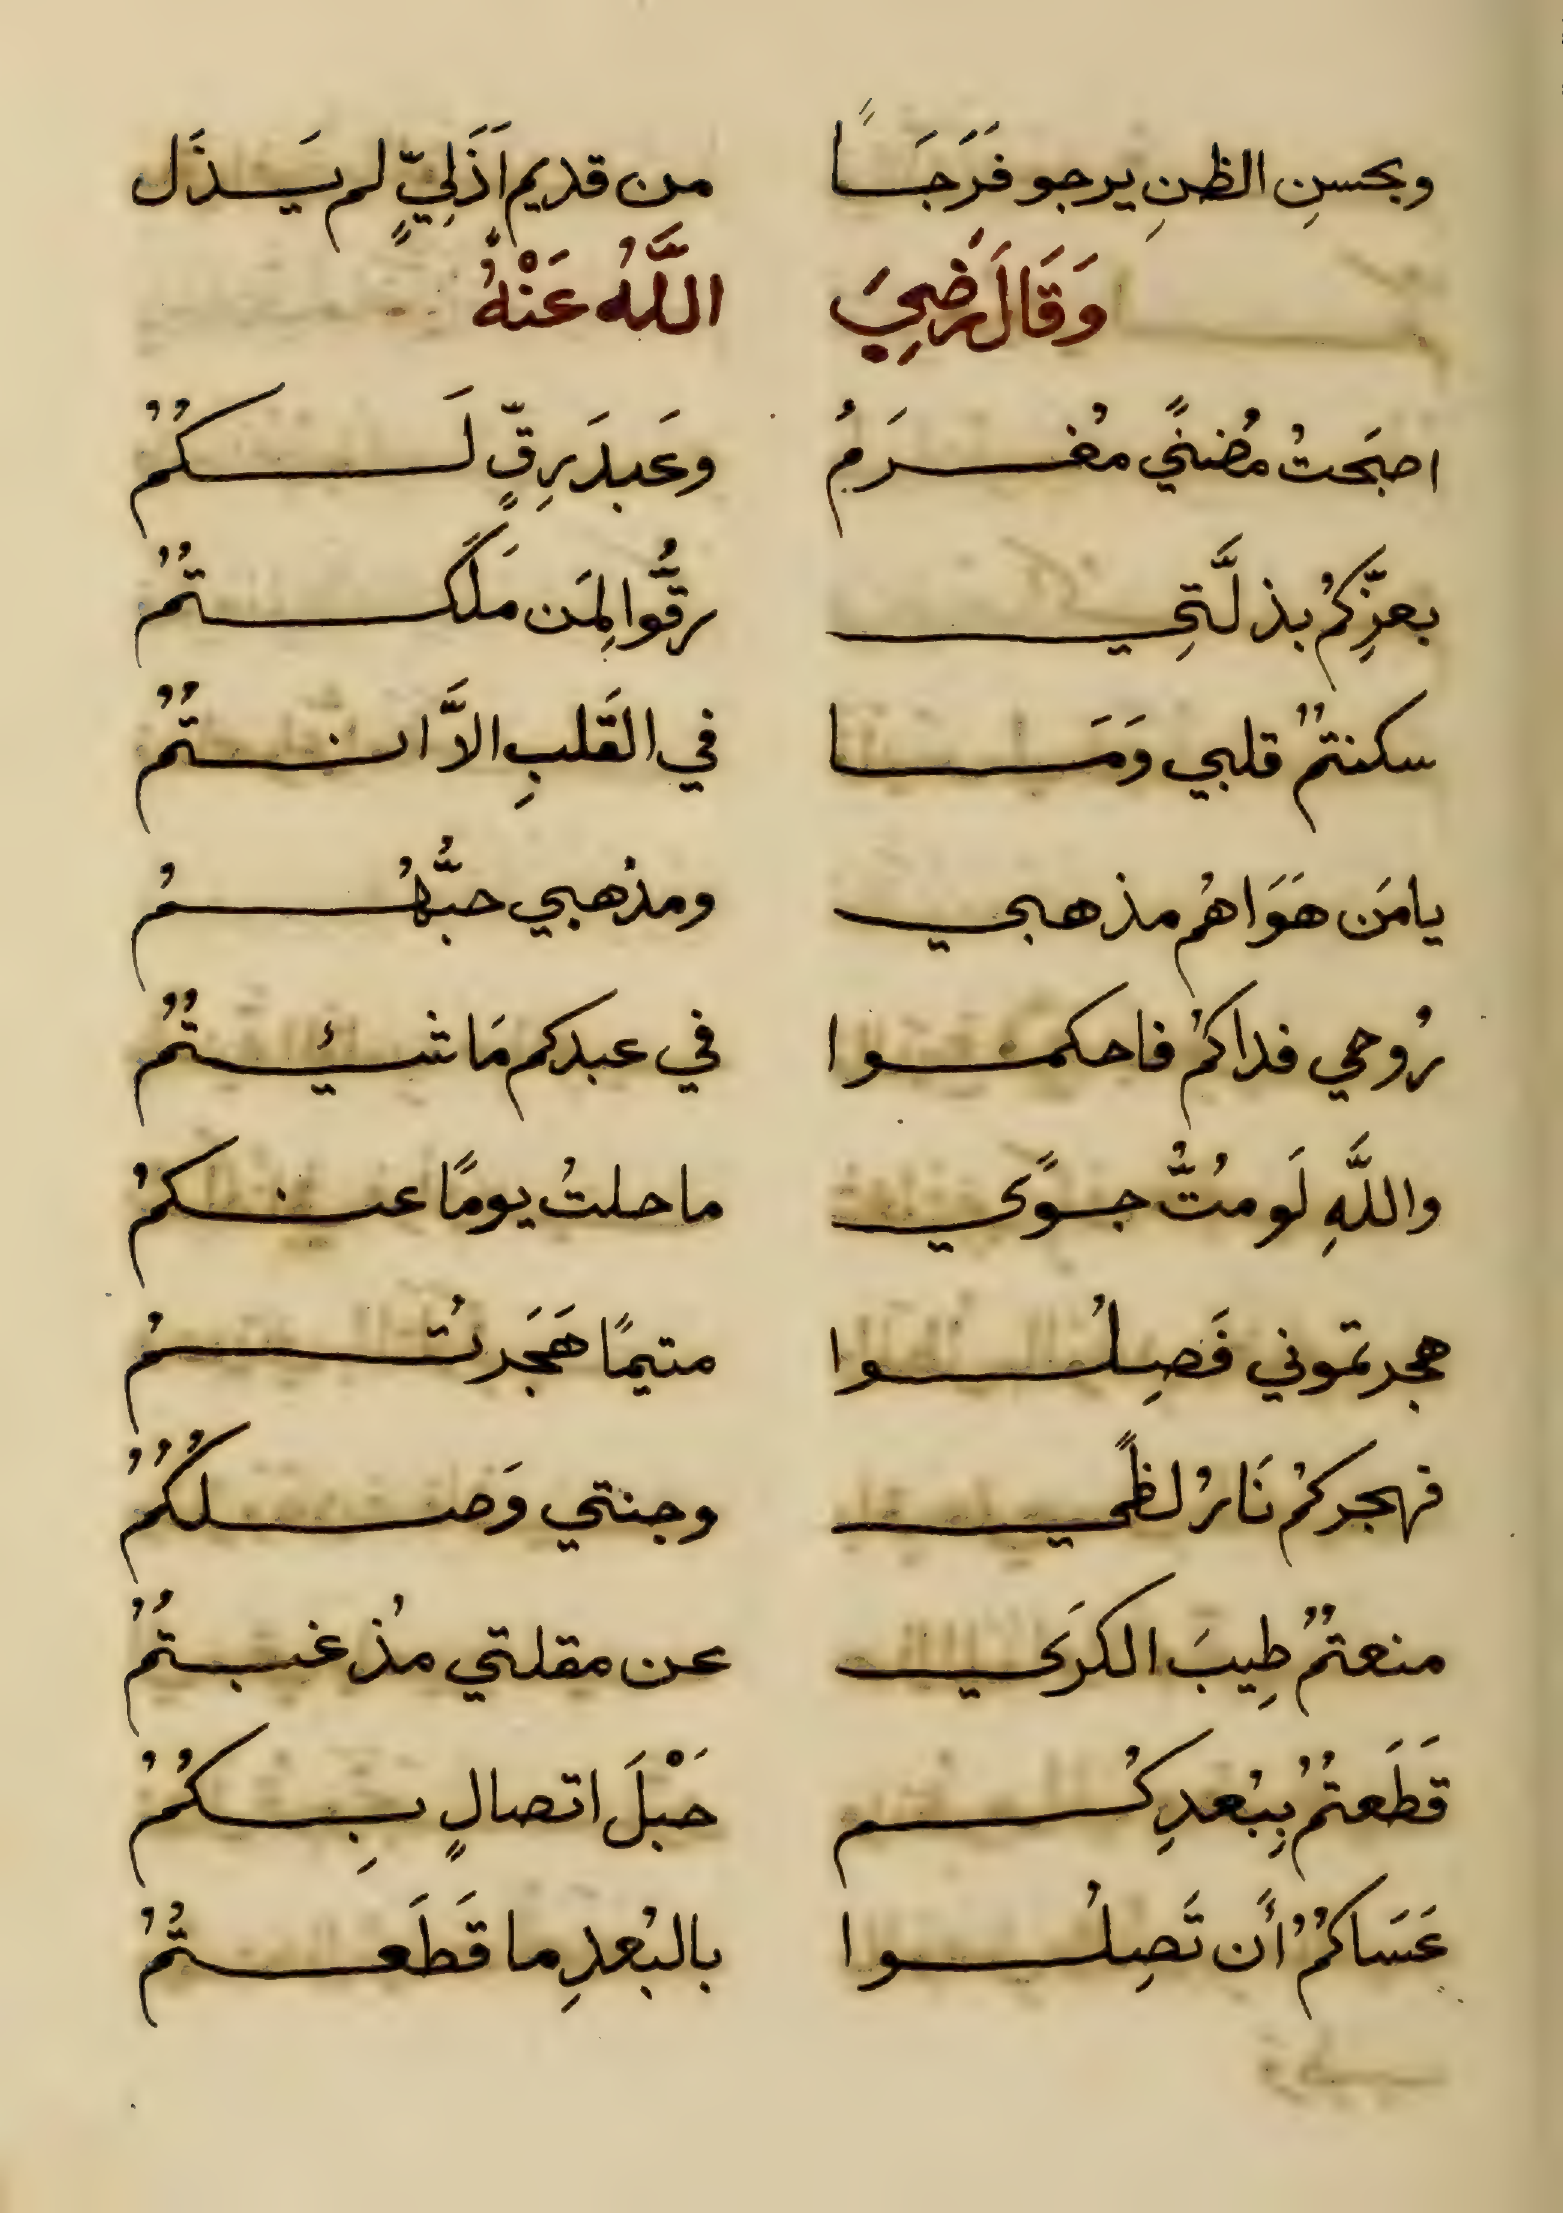 وبحسنِ الظنِ يرجو فَرَجَاً من قديم اَذَلِيٍّ لم يَذَل
وَقَالَ رَضِيَ اللَّهُ عَنْهُ
اصبَحتُ مُضنىً مُغرَمُ وعَبدَ رِقٍّ لَكُمُ
بعزِّكُم بذلَّتِي رقُّوا لِمَن مَلَكتُمُ
سكنتُمُ قلبي وَمَا في القَلبِ الاَّ انتُمُ
يا مَن هَوَاهُم مذهبي ومذهبي حبُّهُمُ
رُوحي فداكُم فاحكموا في عبدكم مَا شئِتُمُ
واللَّهِ لَو مُتُّ جوًى ما حلتُ يومًا عنكمُ
هجرتموني فَصِلُوا متيمًا هَجَرتُمُ
فهجركُم نَارُ لظًى وجنتي وَصلُكُمُ
منعتمُ طِيبَ الكرَى عن مقلتي مُذ غبتُمُ
قَطَعتمُ بِبُعدِكُم حَبْلَ اتصالٍ بِكُمُ
عَسَاكُمُ أَن تَصِلُوا بالبُعدِ ما قَطَعتُمُ